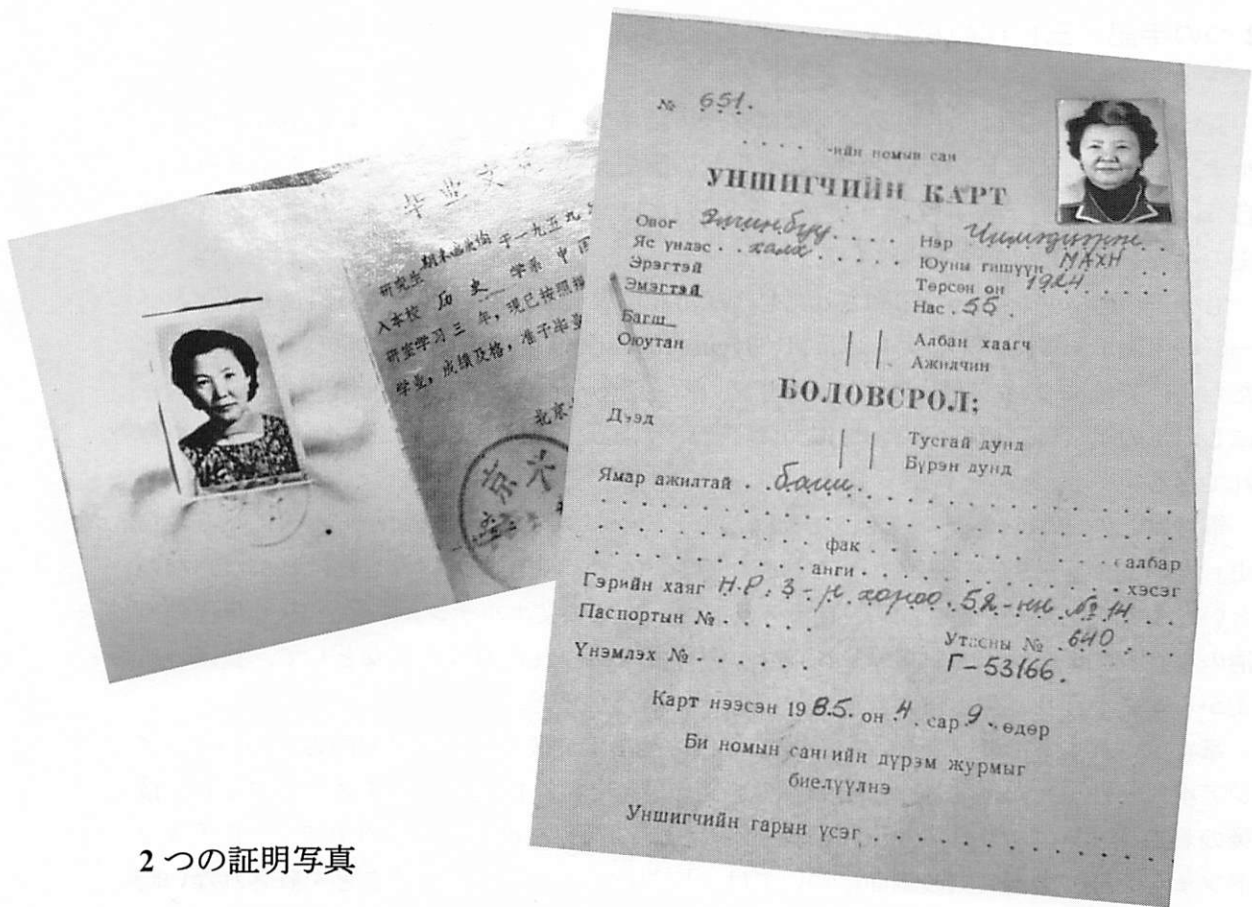 毕业文凭
研究生 期米德道尔 于一九五九
入本校 历史 学系 中国
研室学习三年，现已按照
学业，成绩及格，准予毕业
北京
京大
№ 651.
. . . . -ийн номын сан
УНШИГЧИЙН КАРТ
Овог Элгинбуу . . . . Нэр
Яс үндэс . . халх . . . . . . Юуны гишүүн МАХН . .
Эрэгтэй Төрсөн он 1924 . . . . .
Эмэгтэй Нас . 55 .
Багш
Оюутан Албан хаагч
Ажилчин
БОЛОВСРОЛ;
Дээд Тусгай дунд
Бүрэн дунд
Ямар ажилтай . . багш. . . . . . . . . . . . . .
. . . . . . . . . . фак . . . . . . . . . . . салбар
. . . . . . . . . . анги . . . . . . . . . . . хэсэг
Гэрийн хаяг Н.Р. 3-р хороо. 52-ын № 14 . .
Паспортын № . . . . . Утасны № 640 . . .
Үнэмлэх № . . . . . . Г-53166.
Карт нээсэн 1985. он 4. сар 9. өдөр
Би номын сангийн дүрэм журмыг
биелүүлнэ
Уншигчийн гарын үсэг . . . . . . . . . . . .
2つの証明写真